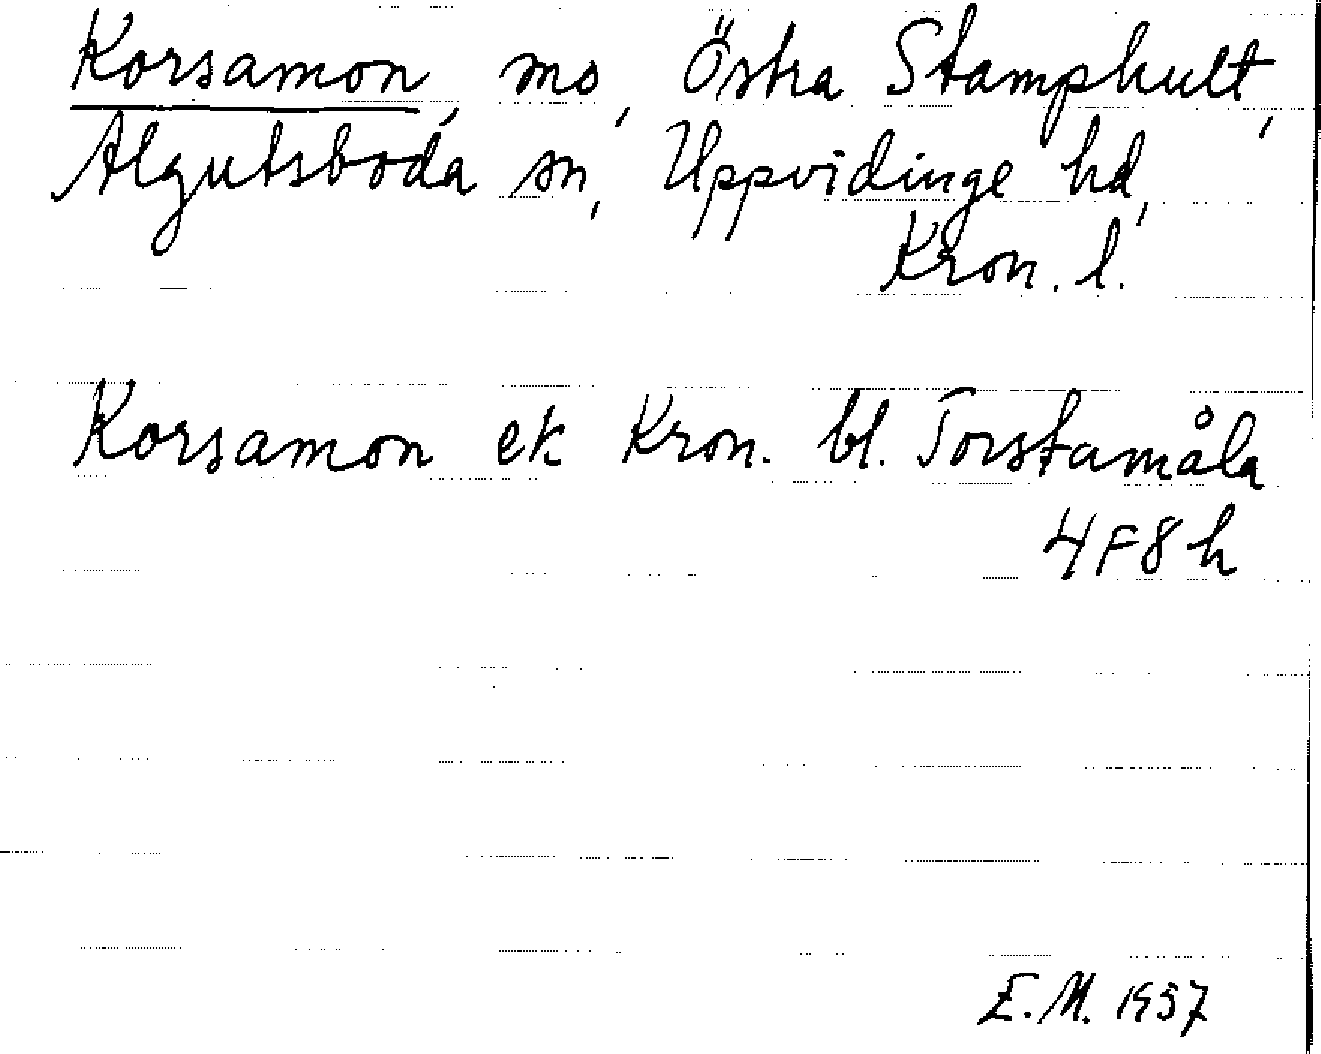 Korsamon, mo, Östra Stamphult,
Algutsboda sn, Uppvidinge hd,
Kron. l.
Korsamon ek Kron. bl. Torstamåla
4F8h
E.M. 1957